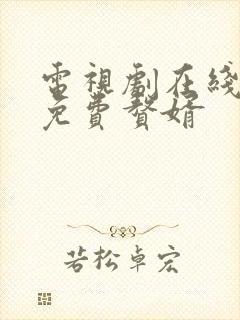 電視劇在綫
免費贅婿
若松卓宏